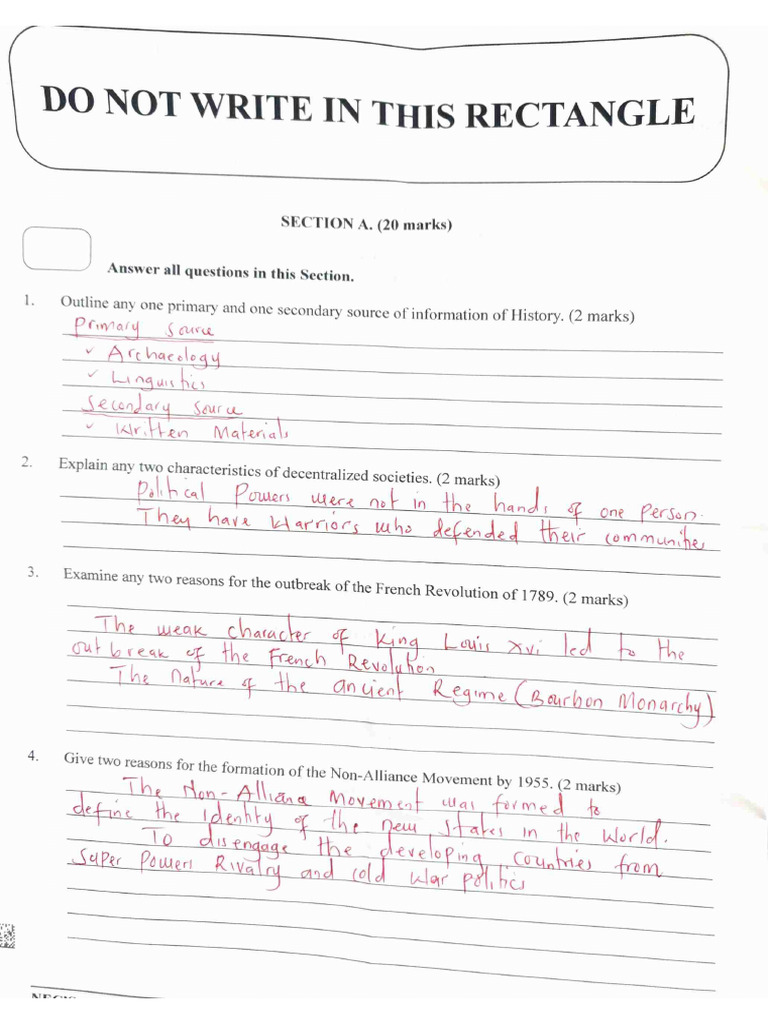 DO NOT WRITE IN THIS RECTANGLE
SECTION A. (20 marks)
Answer all questions in this Section.
1. Outline any one primary and one secondary source of information of History. (2 marks)
Primary Source
✓ Archaeology
✓ Linguistics
Secondary Source
✓ Written Materials
2. Explain any two characteristics of decentralized societies. (2 marks)
Political Powers were not in the hands of one person.
They have Warriors who defended their communities
3. Examine any two reasons for the outbreak of the French Revolution of 1789. (2 marks)
The weak character of King Louis xvi led to the
outbreak of the French Revolution
The Nature of the ancient Regime (Bourbon Monarchy)
4. Give two reasons for the formation of the Non-Alliance Movement by 1955. (2 marks)
The Non-Alliance Movement was formed to
define the Identity of the new States in the World.
To disengage the developing countries from
Super Powers Rivalry and cold War politics